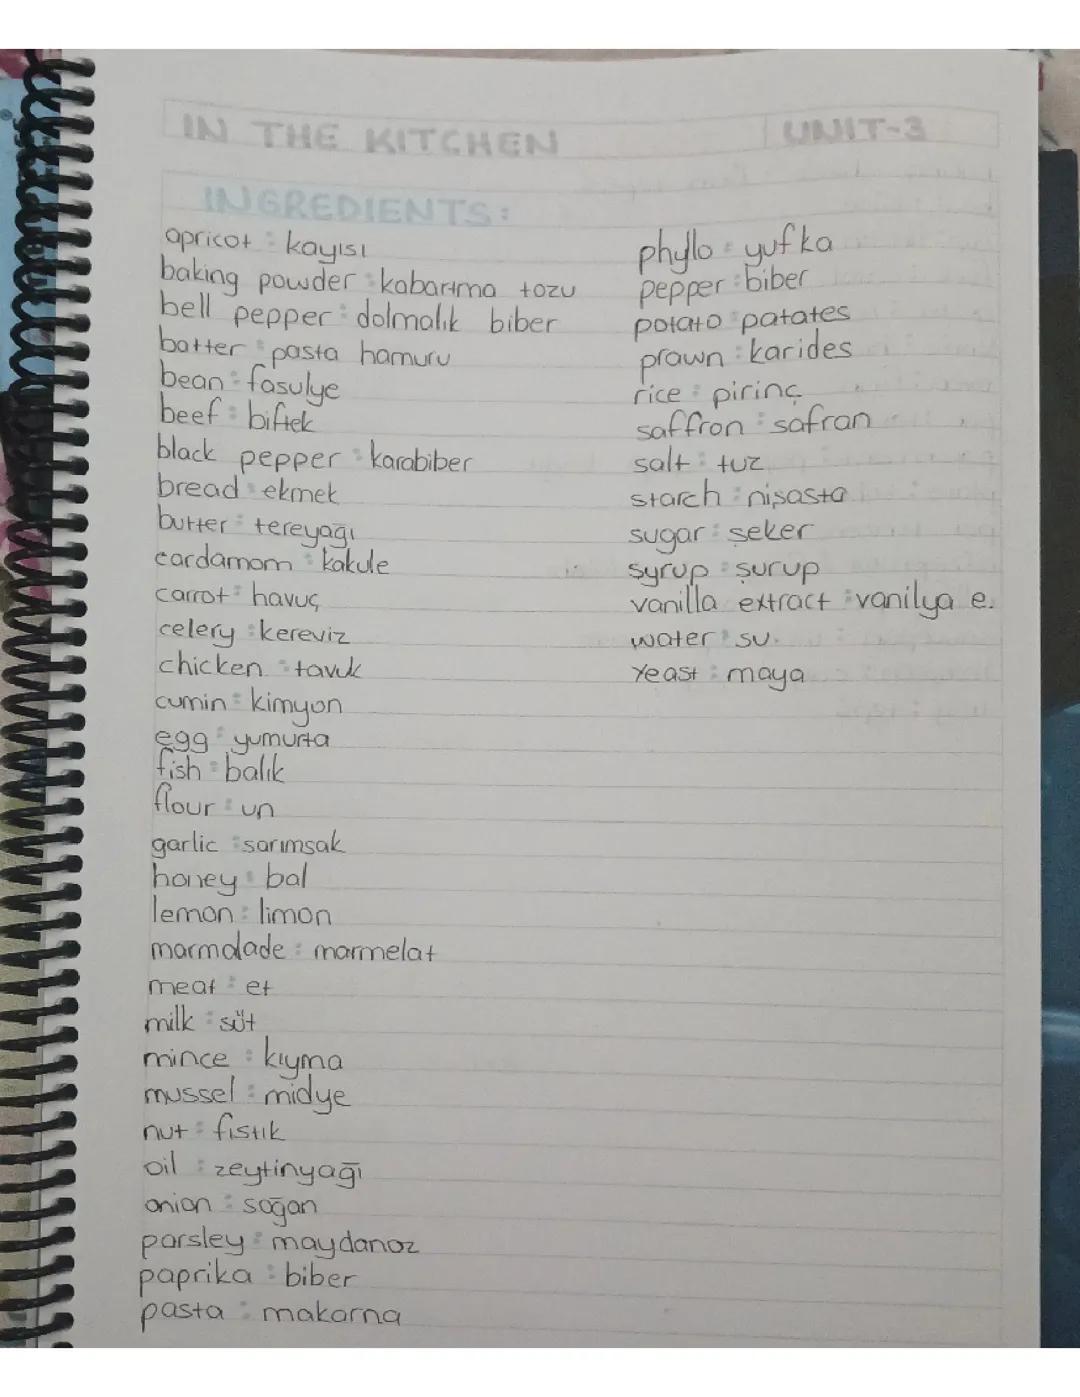 IN THE KITCHEN
UNIT-3
INGREDIENTS:
apricot : kayısı
baking powder : kabartma tozu
bell pepper : dolmalık biber
batter : pasta hamuru
bean : fasulye
beef : biftek
black pepper : karabiber
bread : ekmek
butter : tereyağı
cardamom : kakule
carrot : havuç
celery : kereviz
chicken : tavuk
cumin : kimyon
egg : yumurta
fish : balık
flour : un
garlic : sarımsak
honey : bal
lemon : limon
marmalade : marmelat
meat : et
milk : süt
mince : kıyma
mussel : midye
nut : fıstık
oil : zeytinyağı
onion : soğan
parsley : maydanoz
paprika : biber
pasta : makarna
phyllo : yufka
pepper : biber
potato : patates
prawn : karides
rice : pirinç
saffron : safran
salt : tuz
starch : nişasta
sugar : şeker
syrup : şurup
vanilla extract : vanilya e.
water : su.
yeast : maya